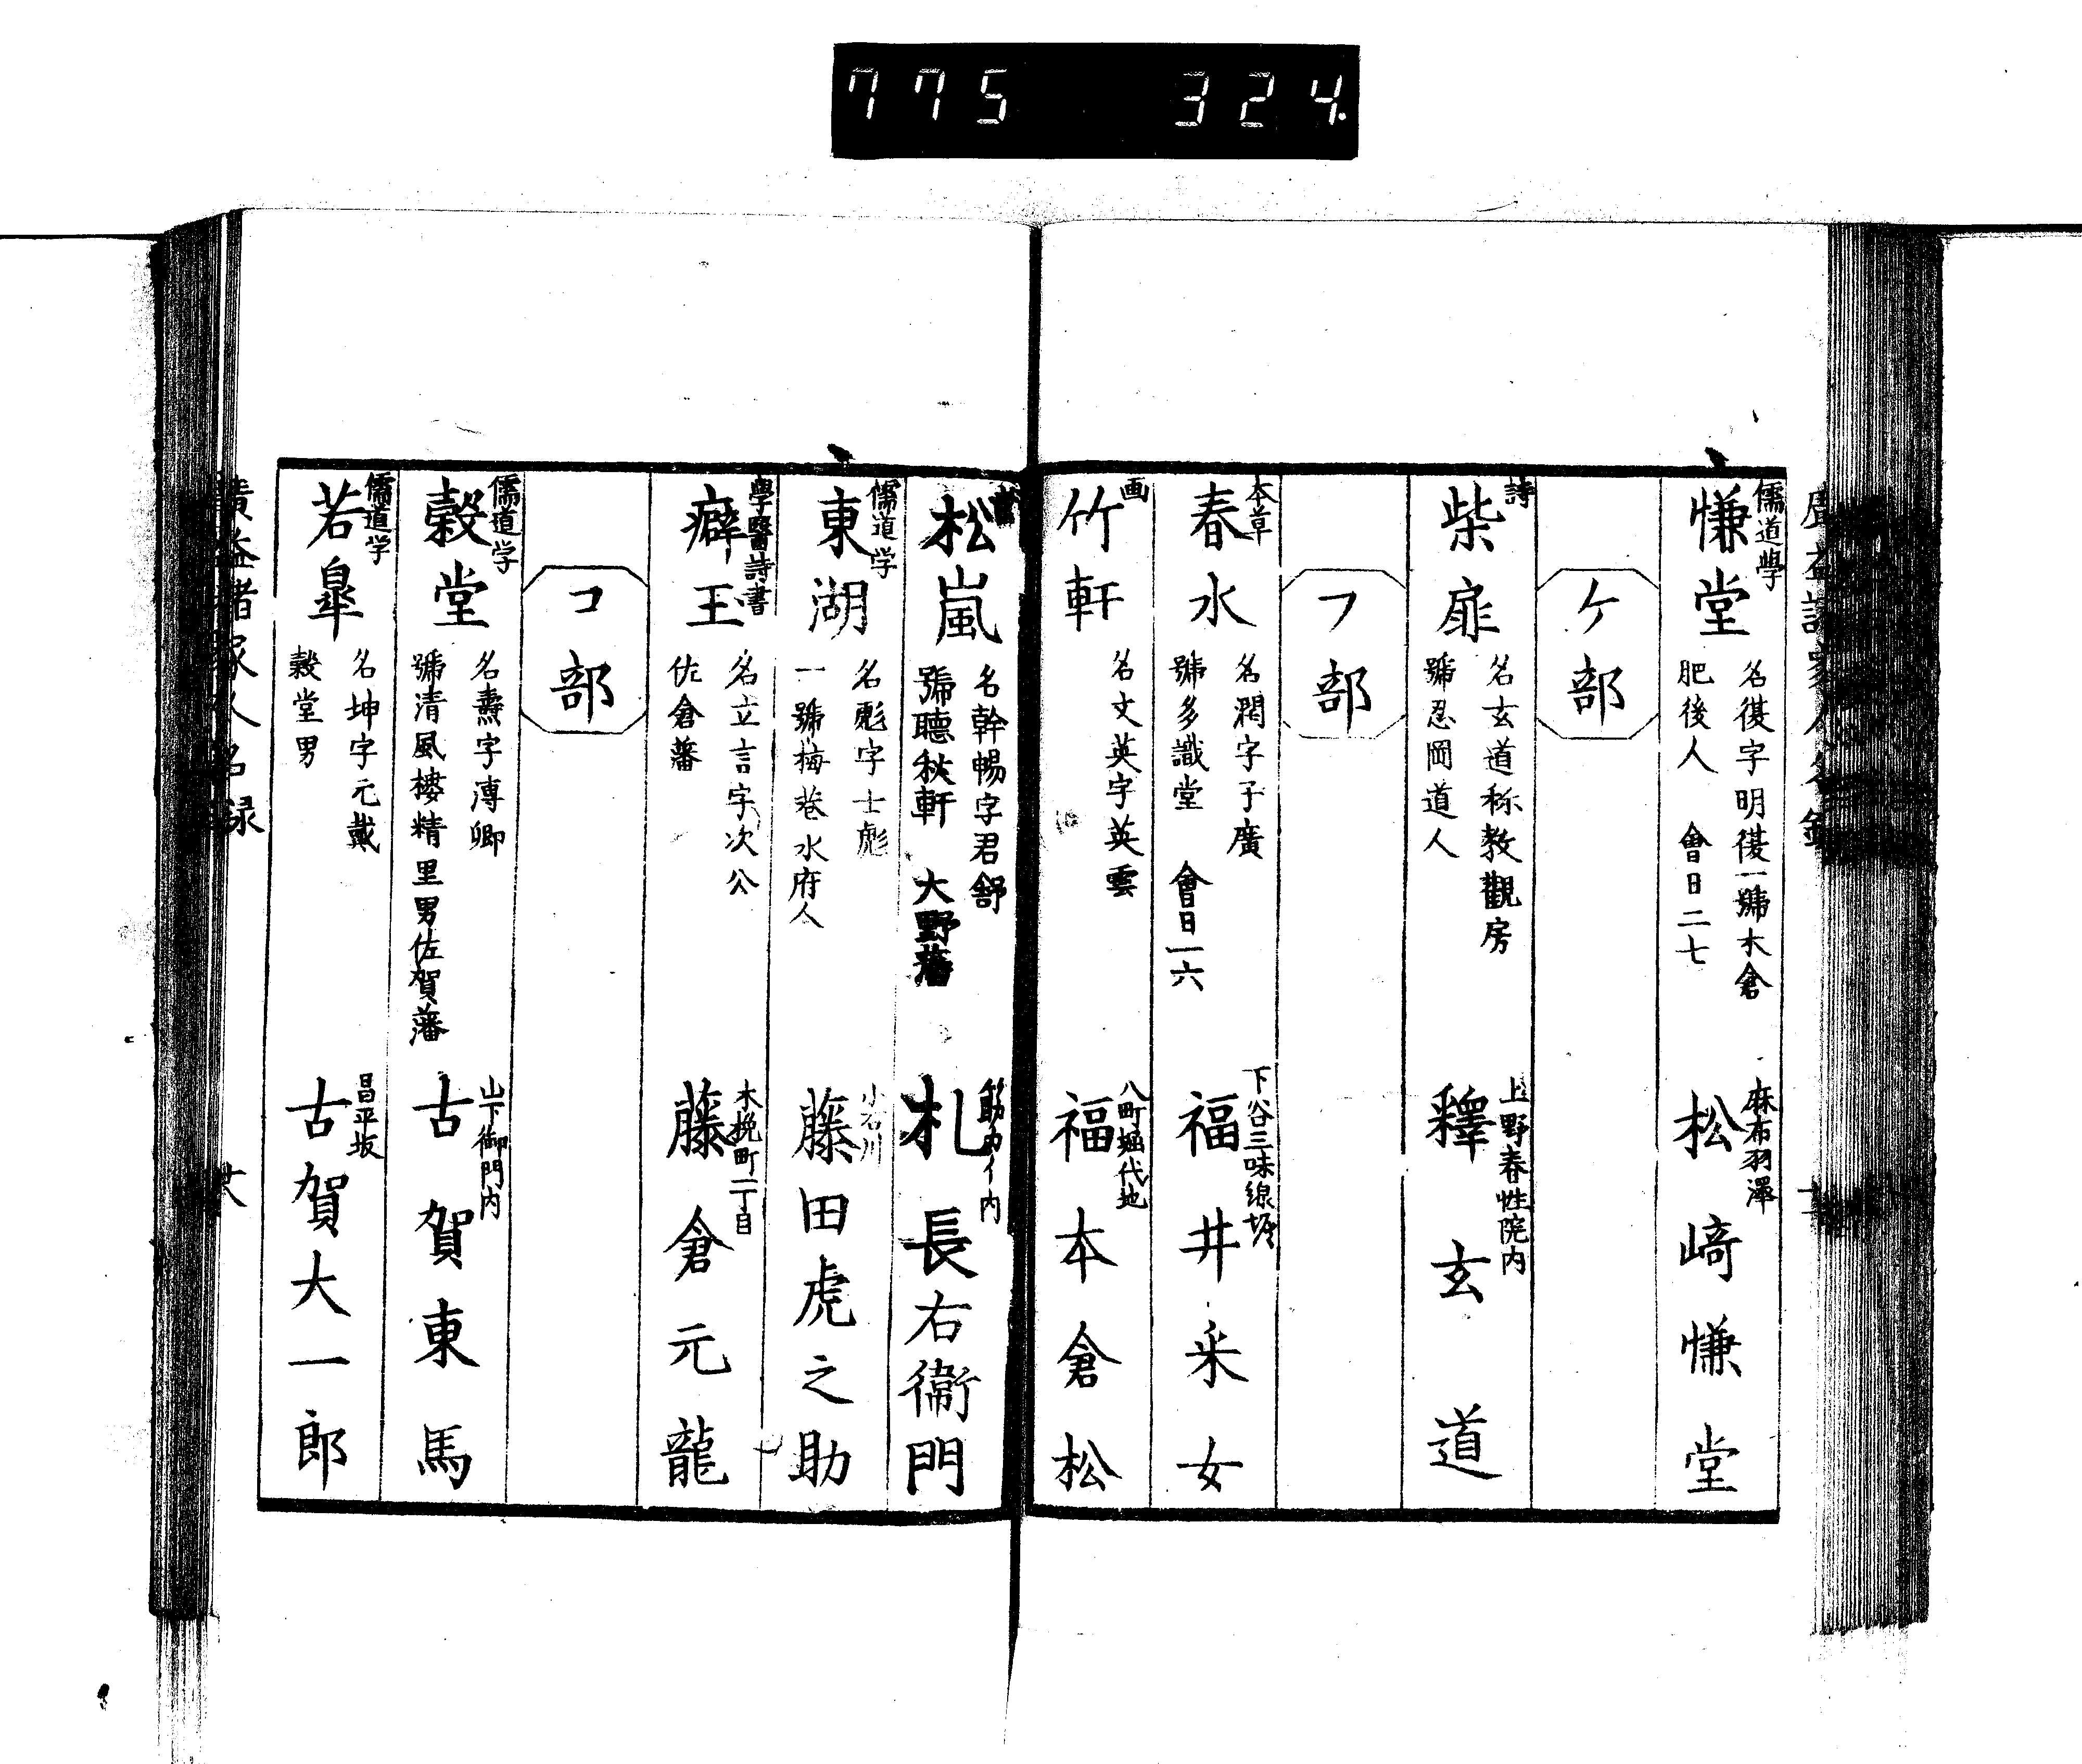 775 324
儒道學
慊堂
名復字明復一號木倉
肥後人 會日二七
麻布羽澤
松﨑慊堂
ケ部
詩
柴扉
名玄道称教觀房
號忍岡道人
上野春性院内
釋玄道
フ部
本草
春水
名濶字子廣
號多識堂 會日一六
下谷三味線堀
福井采女
画
竹軒
名文英字英雲
八町堀代地
福本倉松
松嵐
名幹暢字君舒
號聴秋軒 大野藩
札長右衞門
儒道学
東湖
名彪字士彪
一號梅巷水府人
小石川
藤田虎之助
學醫詩書
癖王
名立言字次公
佐倉藩
木挽町二丁目
藤倉元龍
コ部
儒道学
穀堂
名燾字溥卿
號清風樓精里男佐賀藩
山下御門内
古賀東馬
儒道学
若皐
名坤字元載
穀堂男
昌平坂
古賀大一郎
廣益諸家人名録